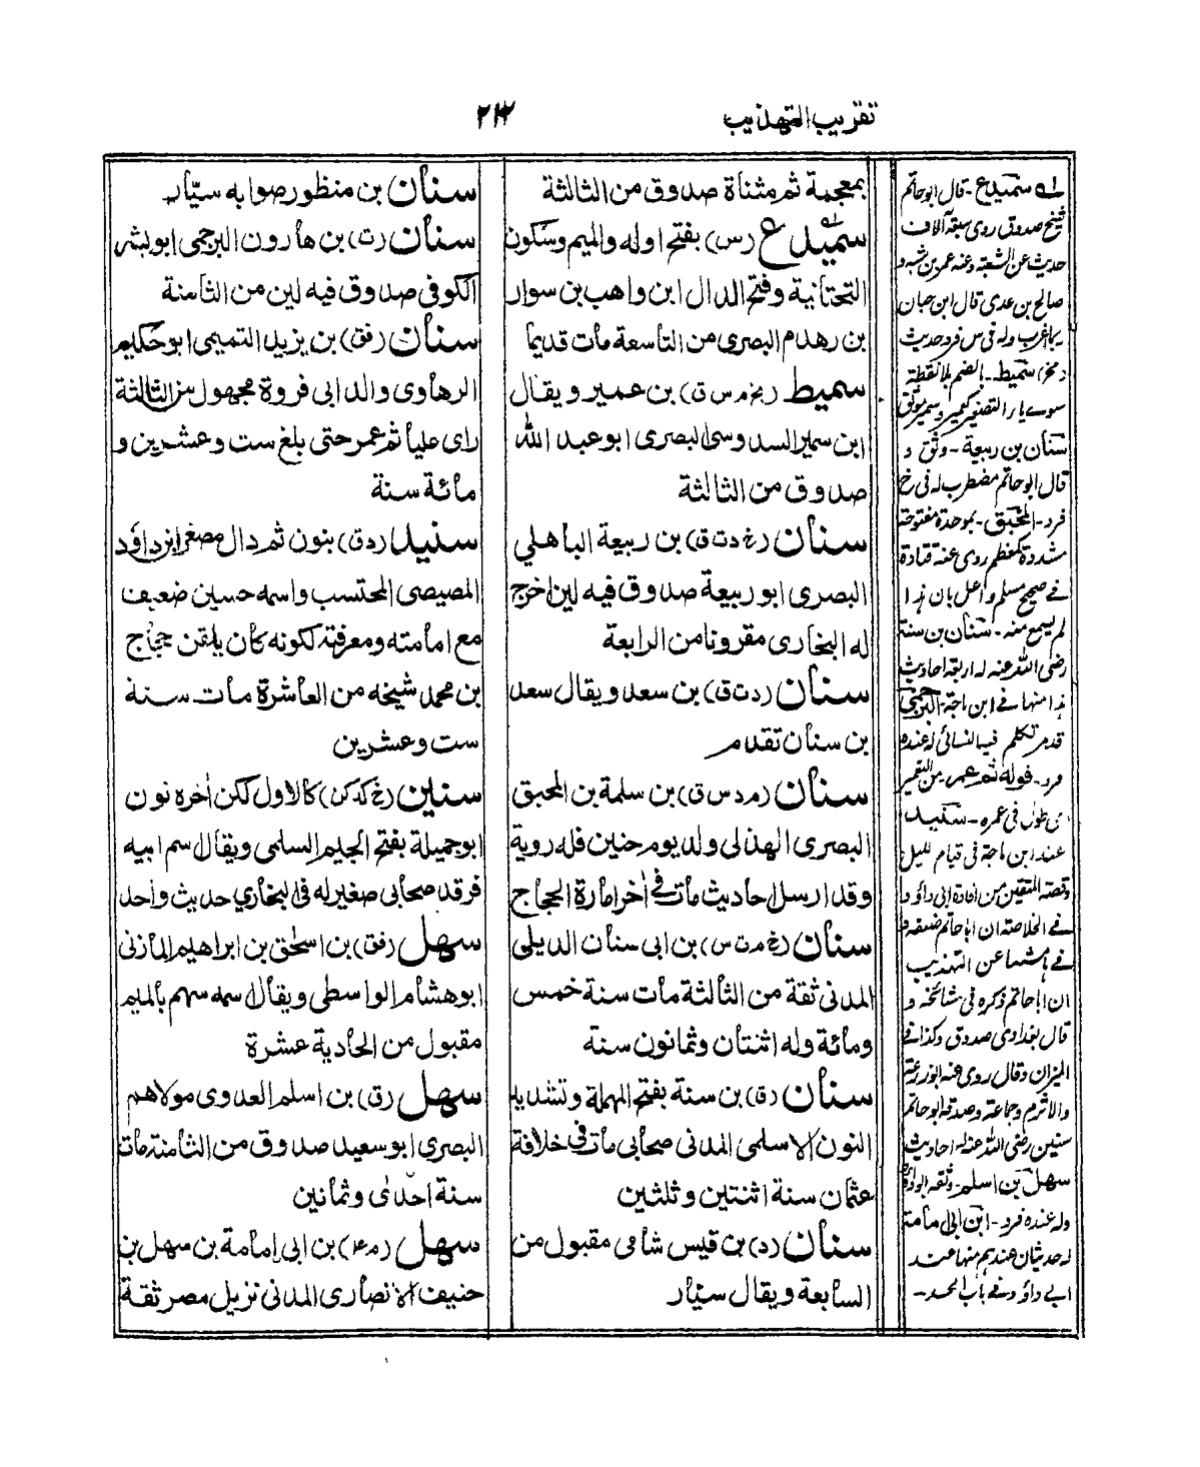 تقريب التهذيب
۲۱۳
بمعجمة ثم مثناة صدوق من الثالثة
سميدع (س) بفتح اوله والميم وسكون
التحتانية وفتح الدال ابن واهب بن سوار
بن رهدم البصرى من التاسعة مات قديما
سميط (بخ م س ق) بن عمير ويقال
ابن سمير السدوسى البصرى ابو عبد الله
صدوق من الثالثة
سنان (خ د ت ق) بن ربيعة الباهلي
البصرى ابو ربيعة صدوق فيه لين اخرج
له البخارى مقرونا من الرابعة
سنان (د ت ق) بن سعد ويقال سعد
بن سنان تقدم
سنان (م د س ق) بن سلمة بن المحبق
البصرى الهذلى ولد يوم حنين فله روية
وقد ارسل احاديث مات فى أخر امارة الحجاج
سنان (خ م ت س) بن ابى سنان الديلى
المدنى ثقة من الثالثة مات سنة خمس
ومائة وله اثنتان وثمانون سنة
سنان (ق) بن سنة بفتح المهملة وتشديد
النون الاسلمى المدنى صحابى مات فى خلافة
عثمان سنة اثنتين وثلثين
سنان (د) بن قيس شامى مقبول من
السابعة ويقال سيار
سنان بن منظور صوابه سيّار
سنان (ت) بن هارون البرجمى ابو بشر
الكوفى صدوق فيه لين من الثامنة
سنان (فق) بن يزيد التميمى ابو حكيم
الرهاوى والد ابى فروة مجهول من الثالثة
راى عليا ثم عمر حتى بلغ ست وعشرين و
مائة سنة
سنيد (ق) بنون ثم دال مصغر ابن داؤد
المصيصى المحتسب واسمه حسين ضعيف
مع امامته ومعرفته لكونه كان يلقن حجاج
بن محمد شيخه من العاشرة مات سنة
ست وعشرين
سنين (خ كد كن) كالاول لكن أخره نون
ابو جميلة بفتح الجيم السلمى ويقال اسم ابيه
فرقد صحابى صغير له فى البخاري حديث واحد
سهل (فق) بن اسحق بن ابراهيم المازنى
ابو هشام الواسطى ويقال اسمه سهم بالميم
مقبول من الحادية عشرة
سهل (ق) بن اسلم العدوى مولاهم
البصرى ابو سعيد صدوق من الثامنة مات
سنة احدى وثمانين
سهل (م ۴) بن ابى امامة بن سهل بن
حنيف الانصارى المدنى نزيل مصر ثقة
سميدع - قال ابو حاتم
شيخ صدوق روى سبعة آلاف
حديث عن الشعبة وعنه عمر بن شبه و
صالح بن عدى قال ابن حبان
ربما اغرب وله فى س فرد حديث
سميط - بالضم بلا نقطة
سنان بن ربيعة - وثق و
قال ابو حاتم مضطرب له فى خ
فرد - المحبق - بموحدة مفتوحة
مشددة كمعظم روى عنه قتادة
فى صحيح مسلم واعل بان هذا
لم يسمع منه - سنان بن سنة
رضى الله عنه له اربعة احاديث
هذا منها فى ابن ماجة - البرجمى
قد تكلم فيه النسائى له عنده
فرد - قوله ثم عمر من التعمير
اى طول فى عمره - سنيد
عند ابن ماجة فى قيام الليل
فى الخلاصة ان ابا حاتم ضعفه و
فى هامشها عن التهذيب
ان ابا حاتم ذكره فى مشائخه و
قال بغدادى صدوق وكذا فى
الميزان وقال روى عنه ابو زرعة
والاثرم وجماعة وصدقه ابو حاتم
سنين رضى الله عنه له احاديث
سهل بن اسلم - وثقه ابو داؤد
وله عنده فرد - ابن ابى امامة
له حديثان عندهم منها عند
ابى داؤد وفى باب الحسد -